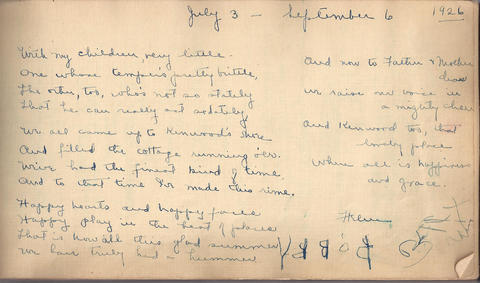 July 3 - September 6 1926
With my children, very little.
One whose temper's pretty brittle,
The other, too, who's not so stately
That he can really act sedately
We all came up to Kenwood's shore
And filled the cottage running o'er.
We've had the finest kind of time.
And to that time I've made this rime.
Happy hearts and happy faces
Happy play in the best of places
That is how all this glad summer
We have truly had a hummer
And now to Father & Mother
dear
We raise our voice in
a mighty cheer
And Kenwood too, that
lovely place
Where all is happiness
and grace.
Helen